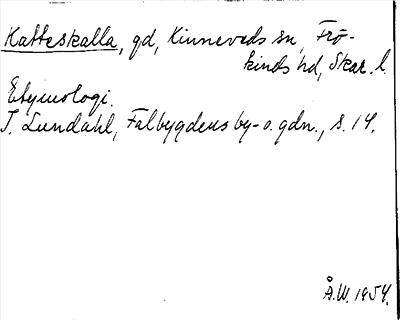 Katteskalla, gd, Kinneveds sn, Frö-
kinds hd, Skar. l.
Etymologi.
I. Lundahl, Falbygdens by- o. gdn., s. 14.
Å.W. 1954.